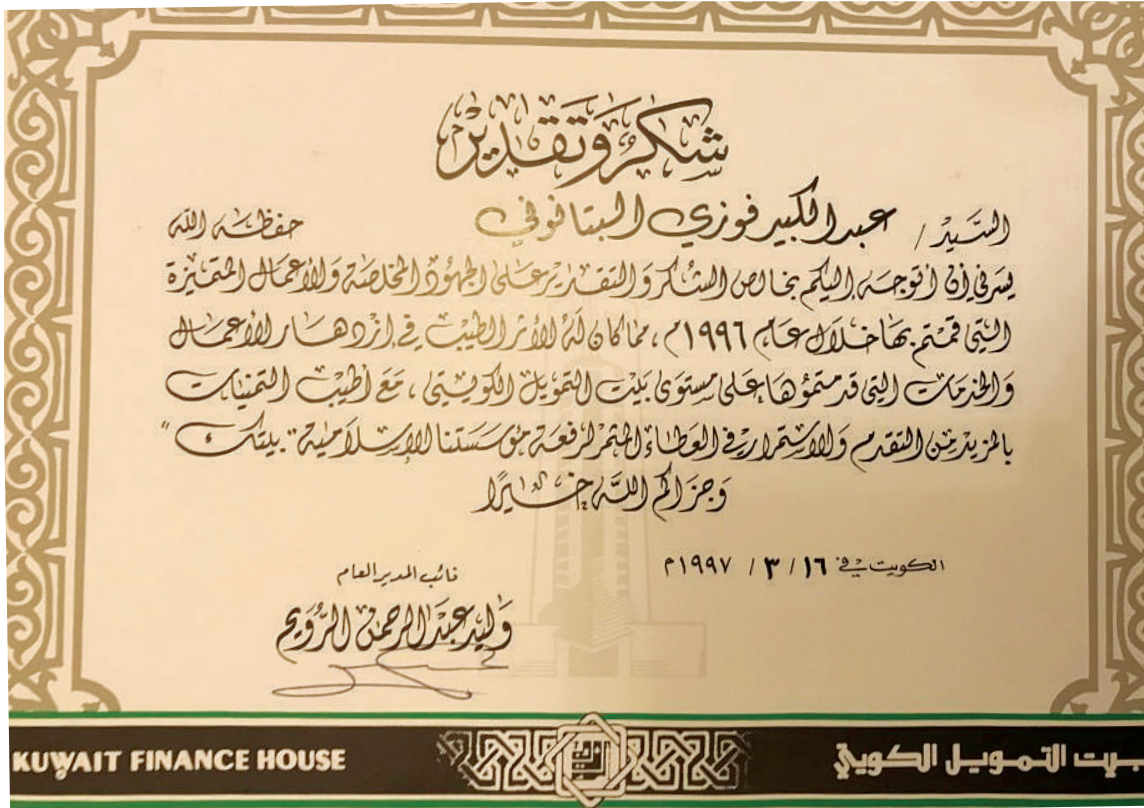 شكر وتقدير
السيد / عبدالكبير فوزي البتانوني حفظه الله
يسرني أن أتوجه إليكم بخالص الشكر والتقدير على الجهود المخلصة والأعمال المتميزة
التي قمتم بها خلال عام ١٩٩٦م ، مما كان له الأثر الطيب في ازدهار الأعمال
والخدمات التي قدمتموها على مستوى بيت التمويل الكويتي ، مع أطيب التمنيات
بالمزيد من التقدم والاستمرار في العطاء المثمر لرفعة مؤسستنا الإسلامية " بيتك "
وجزاكم الله خيرًا
الكويت في ١٦ / ٣ / ١٩٩٧م
نائب المدير العام
وليد عبدالرحمن الرويح
KUWAIT FINANCE HOUSE
بيت التمويل الكويتي